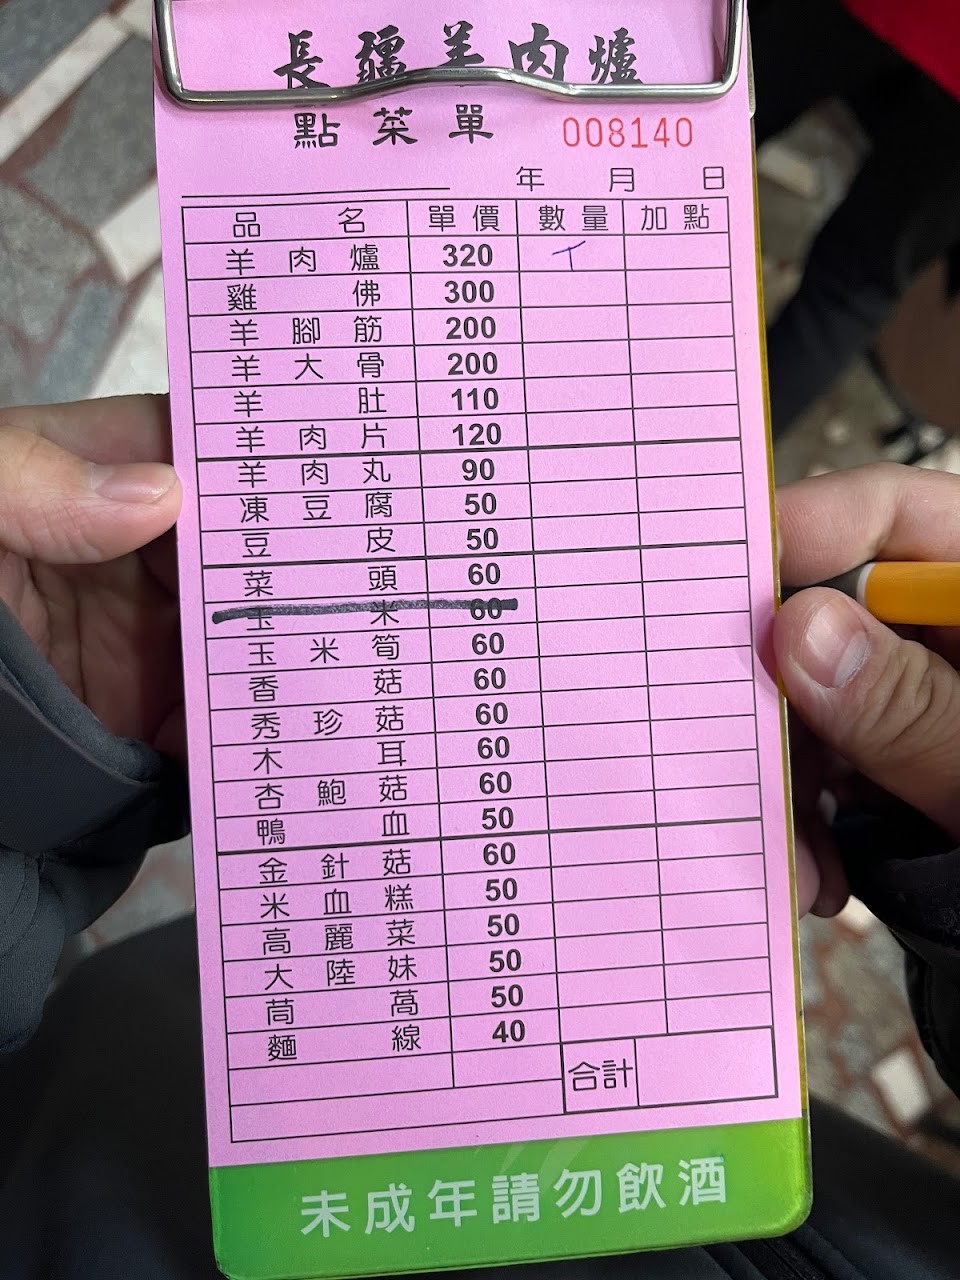 長疆羊肉爐
點菜單 008140
年 月 日
品名 單價 數量 加點
羊肉爐 320
雞佛 300
羊腳筋 200
羊大骨 200
羊肚 110
羊肉片 120
羊肉丸 90
凍豆腐 50
豆皮 50
菜頭 60
玉米 60
玉米筍 60
香菇 60
秀珍菇 60
木耳 60
杏鮑菇 60
鴨血 50
金針菇 60
米血糕 50
高麗菜 50
大陸妹 50
茼萵 50
麵線 40
合計
未成年請勿飲酒